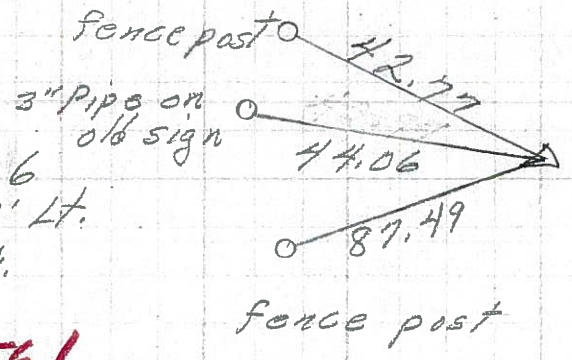 fence post
42.77
3" Pipe on
old sign
44.06
6
' Lt.
87.49
fence post